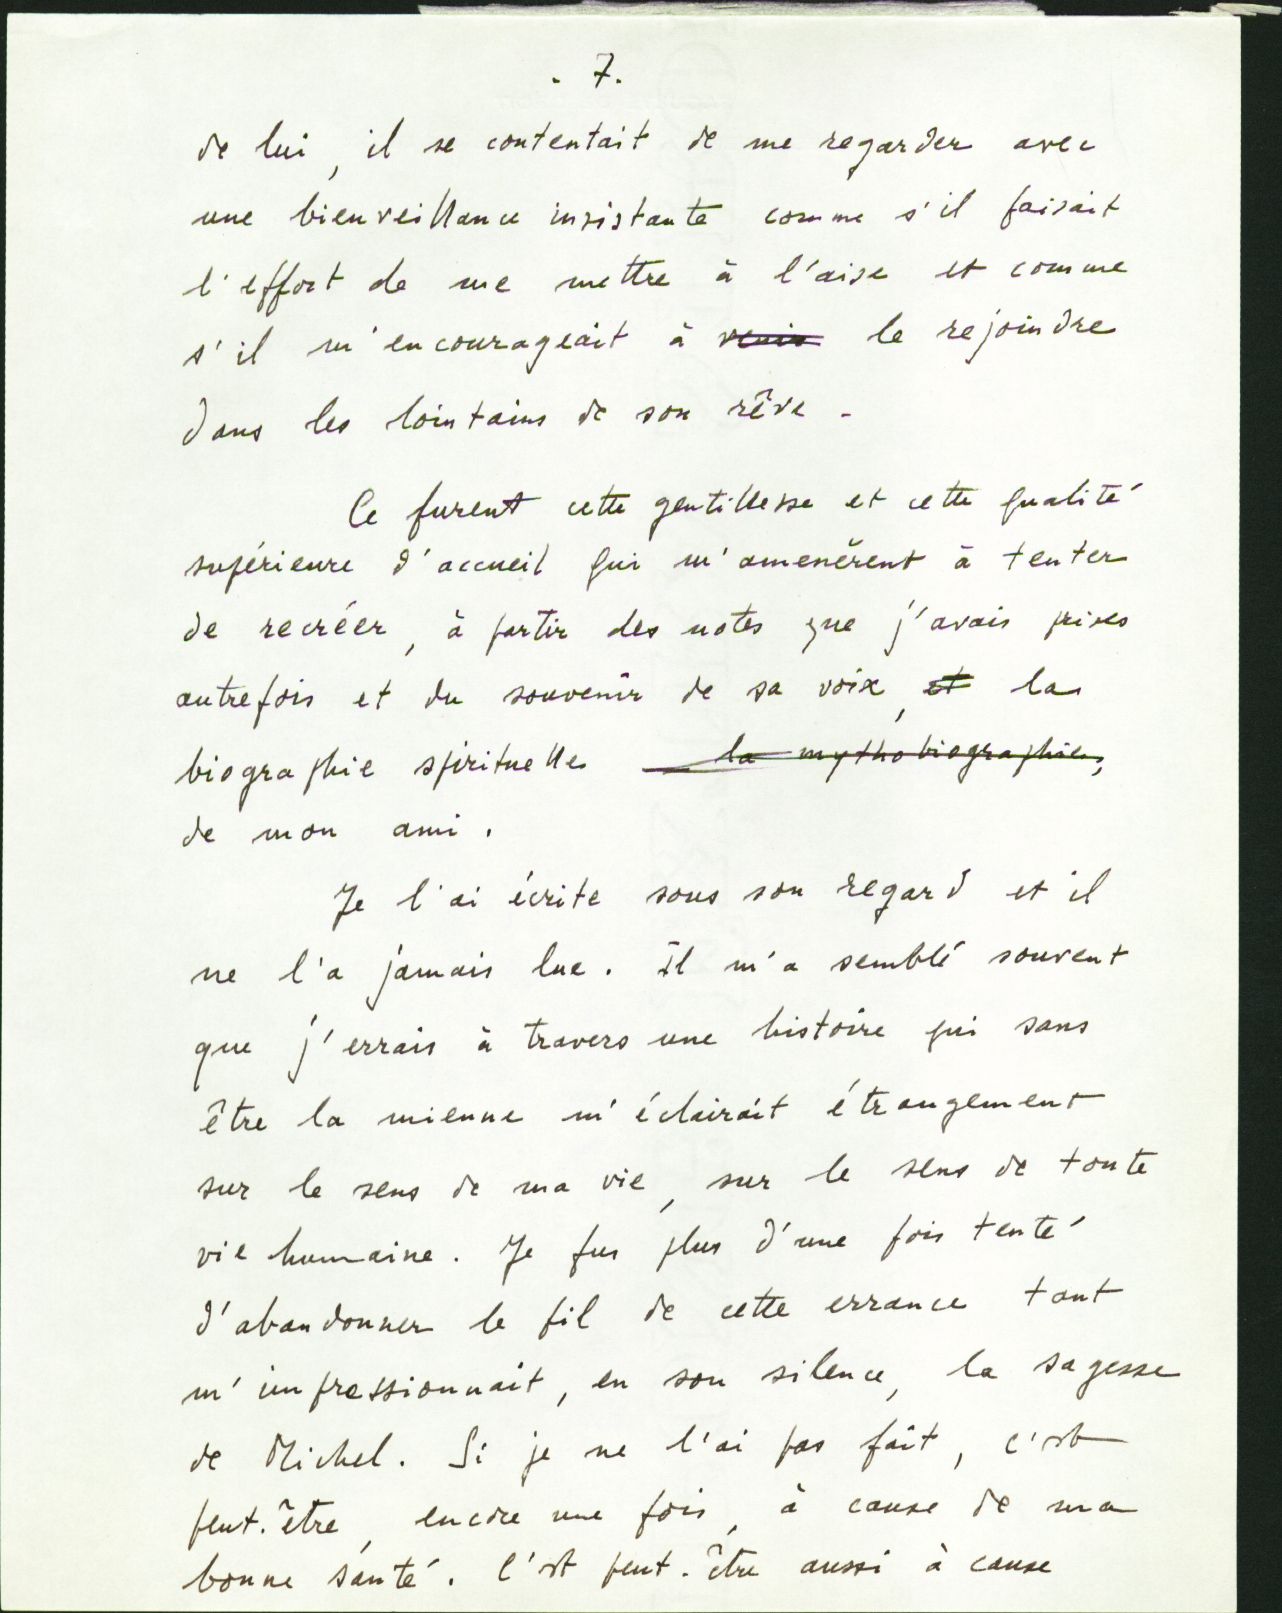 - 7.
de lui, il se contentait de me regarder avec
une bienveillance insistante comme s'il faisait
l'effort de me mettre à l'aise et comme
s'il m'encourageait à venir le rejoindre
dans les lointains de son rêve.
Ce furent cette gentillesse et cette qualité
supérieure d'accueil qui m'amenèrent à tenter
de recréer, à partir des notes que j'avais prises
autrefois et du souvenir de sa voix, et la
biographie spirituelle la mythobiographie,
de mon ami.
Je l'ai écrite sous son regard et il
ne l'a jamais lue. Il m'a semblé souvent
que j'errais à travers une histoire qui sans
être la mienne m'éclairait étrangement
sur le sens de ma vie, sur le sens de toute
vie humaine. Je fus plus d'une fois tenté
d'abandonner le fil de cette errance tant
m'impressionnait, en son silence, la sagesse
de Michel. Si je ne l'ai pas fait, c'est
peut-être, encore une fois, à cause de ma
bonne santé. C'est peut-être aussi à cause